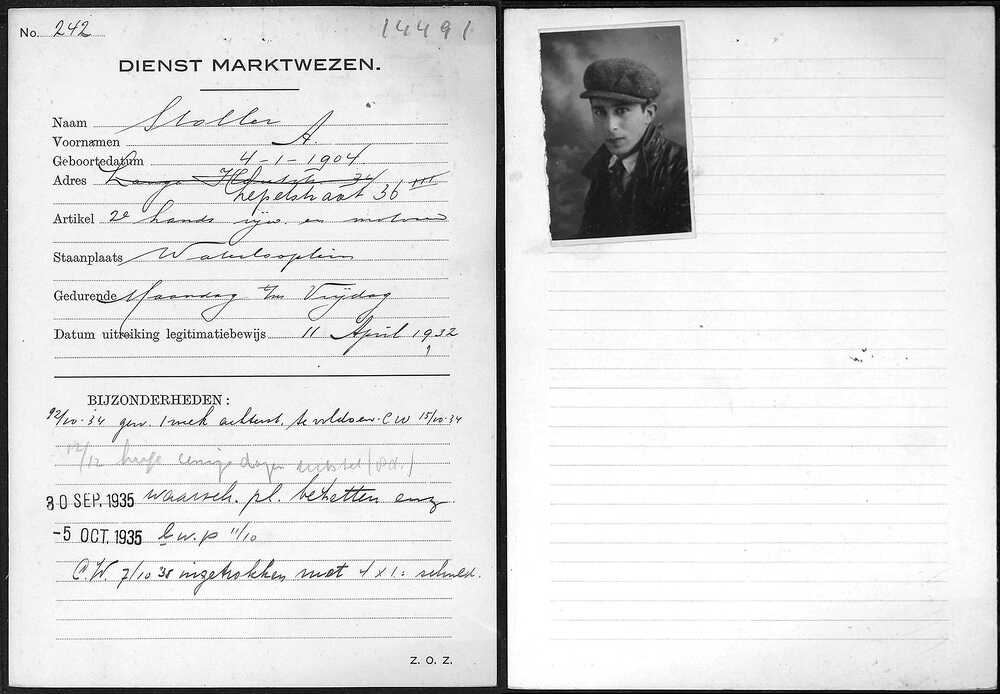 No. 242
14491
DIENST MARKTWEZEN.
Naam Stoller
Voornamen A.
Geboortedatum 4-1-1904
Adres Lange Houtstr. 34
Lepelstraat 36 III
Artikel 2e hands ijw. en motoren
Staanplaats Waterlooplein
Gedurende Maandag t/m Vrijdag
Datum uitreiking legitimatiebewijs 11 April 1932
BIJZONDERHEDEN:
/10-34 gew. 1 week achterst. te voldoen C W 15/10-34
12/12 heeft eenige dagen uitstel (Pd.)
30 SEP. 1935 waarsch. pl. bezetten enz.
-5 OCT. 1935 b.w.p 11/10
C.W. 7/10 35 ingetrokken met 4 x 1.= schuld.
Z. O. Z.